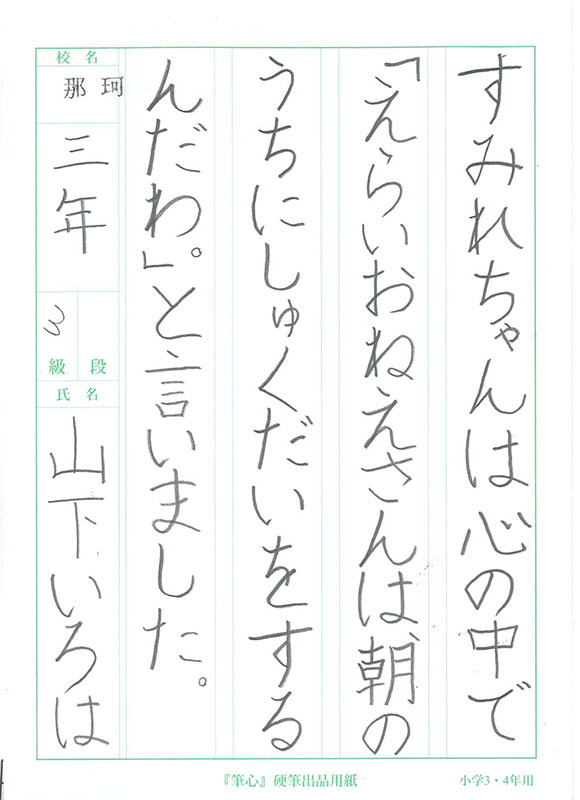 すみれちゃんは心の中で
「えらいおねえさんは、朝の
うちにしゅくだいをする
んだわ」。と言いました。
校名
那珂
三年
段
級
3
氏名
山下いろは
『筆心』硬筆出品用紙
小学3・4年用